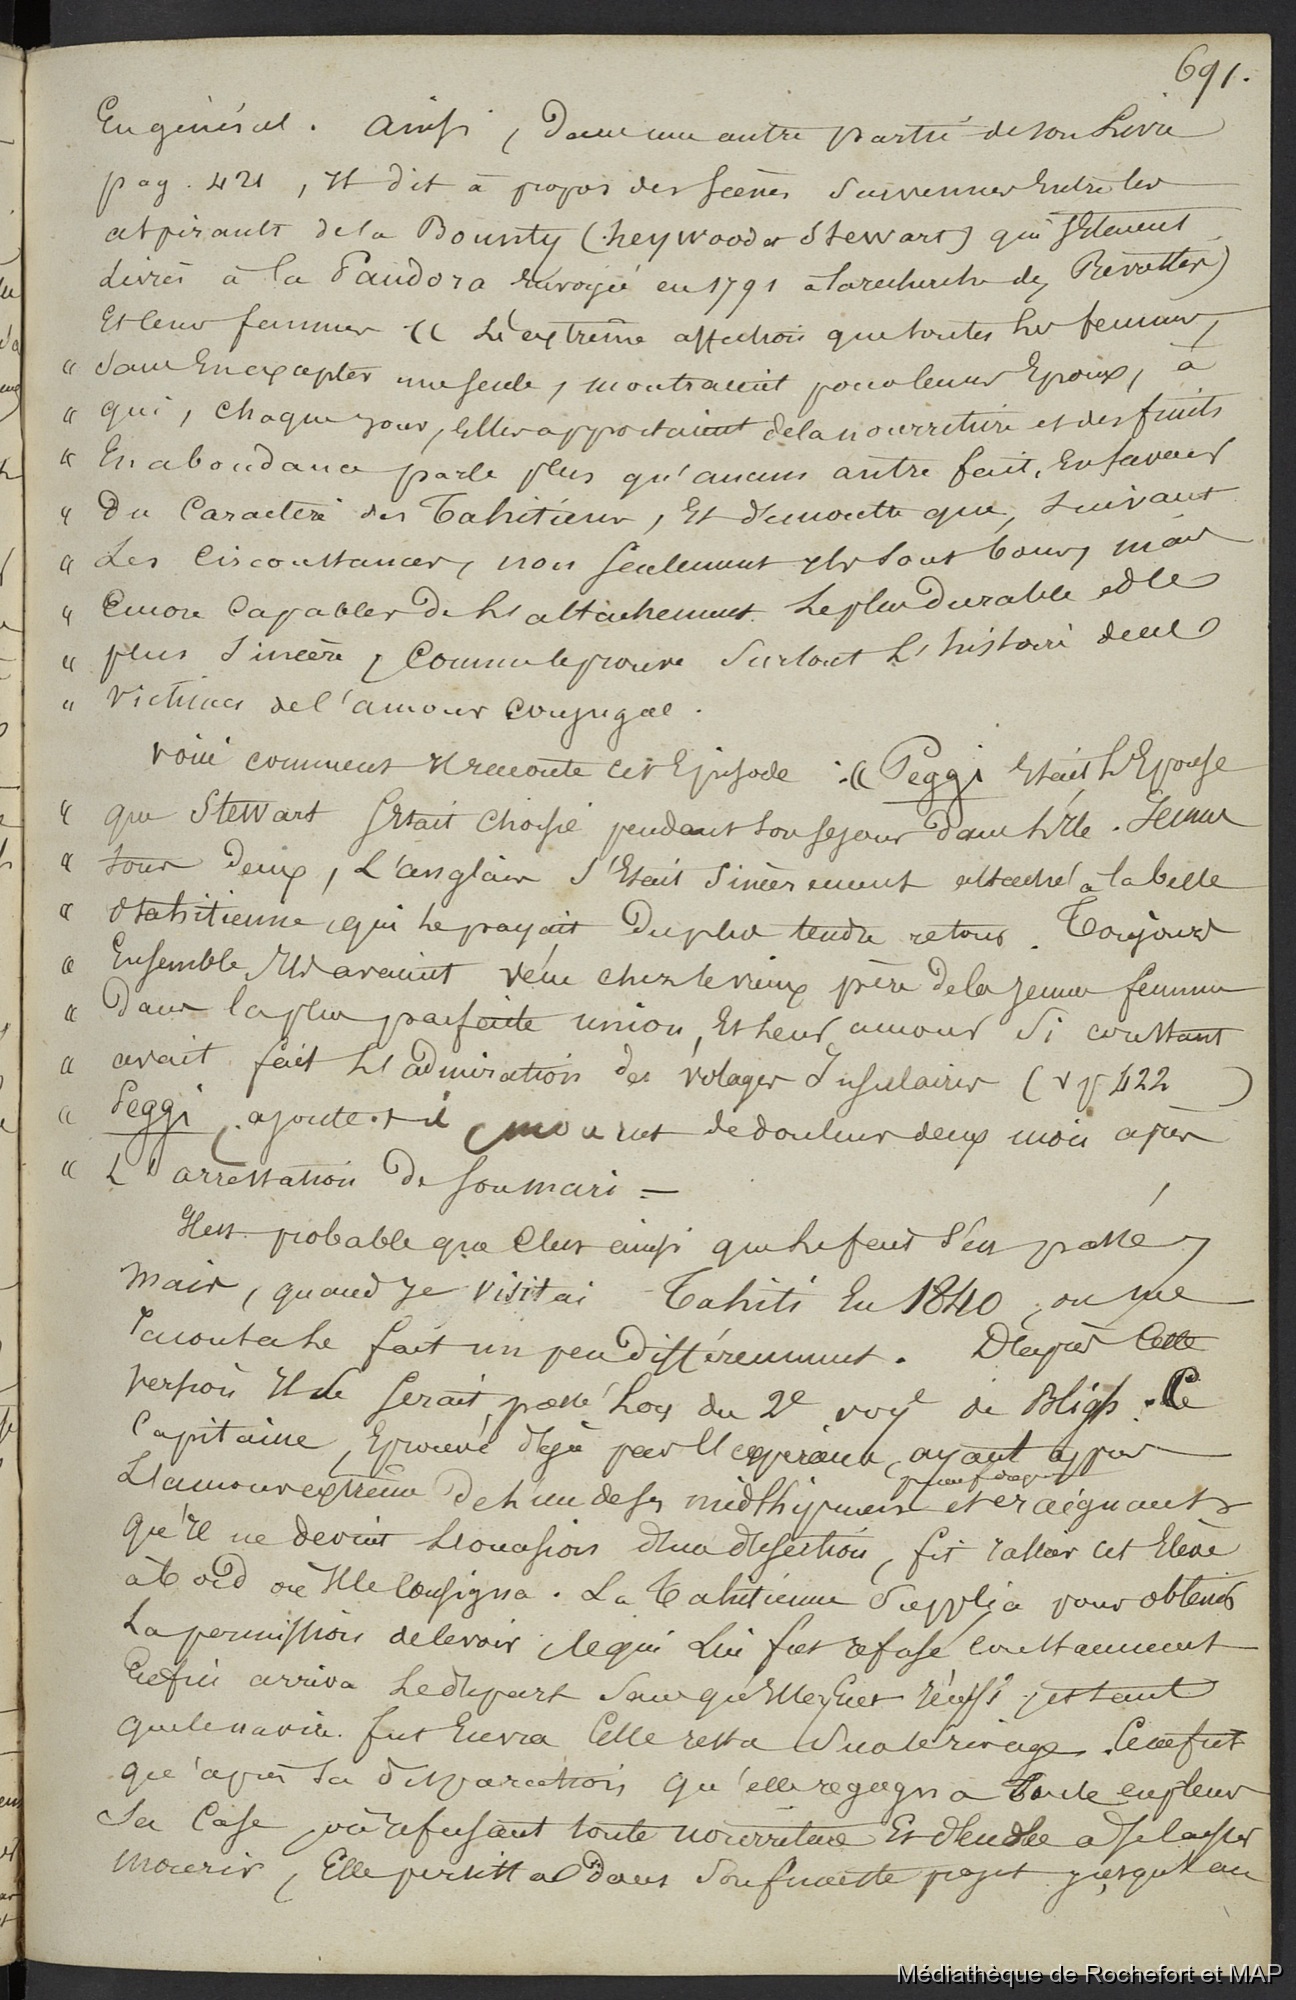 691.
En général. Ainsi, dans une autre partie de son livre
pag. 421, il dit à propos des scènes survenues entre les
aspirants de la Bounty (heywood et Stewart) qui s'étaient
livrés à la Pandora envoyée en 1791 à la recherche des Révoltés)
et leurs femmes « L'extrême affection que toutes les femmes,
" sans en excepter une seule, montraient pour leurs Epoux, à
" qui, chaque jour, elles apportaient de la nourriture et des fruits
" En abondance parle plus qu'aucun autre fait, en faveur
" Du Caractère des Tahitiens, Et démontre que, suivant
" Les circonstances, non seulement ils sont bons, mais
" Encore Capables De l'attachement le plus durable et le
" plus sincère, Comme le prouve surtout L'histoire de ces
" Victimes de l'amour conjugal.
Voici comment il raconte cet Episode : « Peggi était l'Epouse
" que Stewart s'était choisie pendant son séjour dans l'île. Jeunes
" tous deux, L'anglais s'était sincèrement attaché à la belle
" otahitienne, qui le payait Du plus tendre retour. Toujours
" Ensemble ils avaient vécu chez le vieux père de la jeune femme
" Dans la plus parfaite union, Et leur amour si constant
" avait fait L'admiration des volages Insulaires (v p 422 )
" Peggi, ajoute-t-il, mourut de douleur deux mois après
" L'arrestation De son mari —
Il est probable que c'est ainsi que le fait s'est passé,
Mais, quand je visitai Tahiti En 1840, on me
raconta le fait un peu différemment. D'après cette
version il se serait passé lors du 2e voye de Bligh. Ce
Capitaine, éprouvé déjà par l'expérience, ayant appris
L'amour extrême de l'un de ses midshipmen et craignant
qu'il ne devint l'occasion d'une désertion, fit rallier cet Elève
à bord où il le consigna. La Tahitienne supplia pour obtenir
La permission de le voir, ce qui lui fut refusé constamment
Enfin arriva le départ sans qu'elle y eut réussi, et tant
que le navire fut en vue Elle resta sur le rivage. Ce ne fut
qu'après sa disparition qu'elle regagna toute en pleurs
Sa Case, où refusant toute nourriture Et décidée à se laisser
mourir, Elle persista dans son funeste projet jusqu'au
Médiathèque de Rochefort et MAP